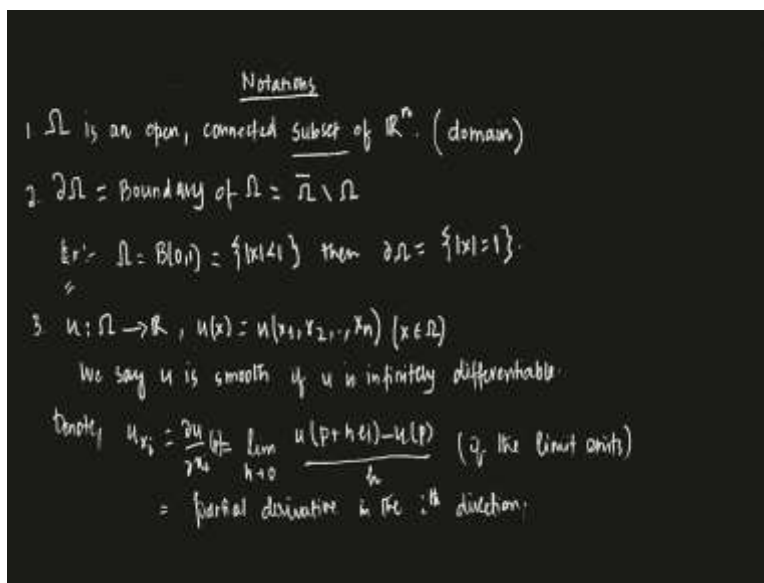 Notations
1. Ω is an open, connected subset of ℝⁿ. (domain)
2. ∂Ω = Boundary of Ω = Ω̄ \ Ω
Ex:- Ω = B(0,1) = {|x|<1} then ∂Ω = {|x|=1}.
3. u:Ω → ℝ, u(x) = u(x₁, x₂, .., xₙ) (x ∈ Ω)
We say u is smooth if u is infinitely differentiable.
Denote, u_{xᵢ} = ∂u/∂xᵢ (p) = lim_{h→0} (u(p+heᵢ) − u(p))/h (if the limit exists)
= partial derivative in the iᵗʰ direction.